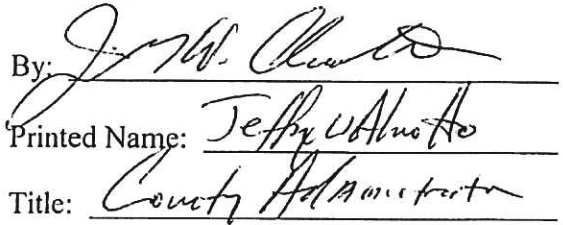 By:
Printed Name: Jeffry W
Title: County Administrator